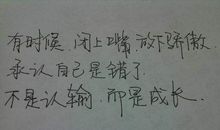 有时候，闭上嘴，放下骄傲，
承认自己是错了.
不是认输，而是成长.